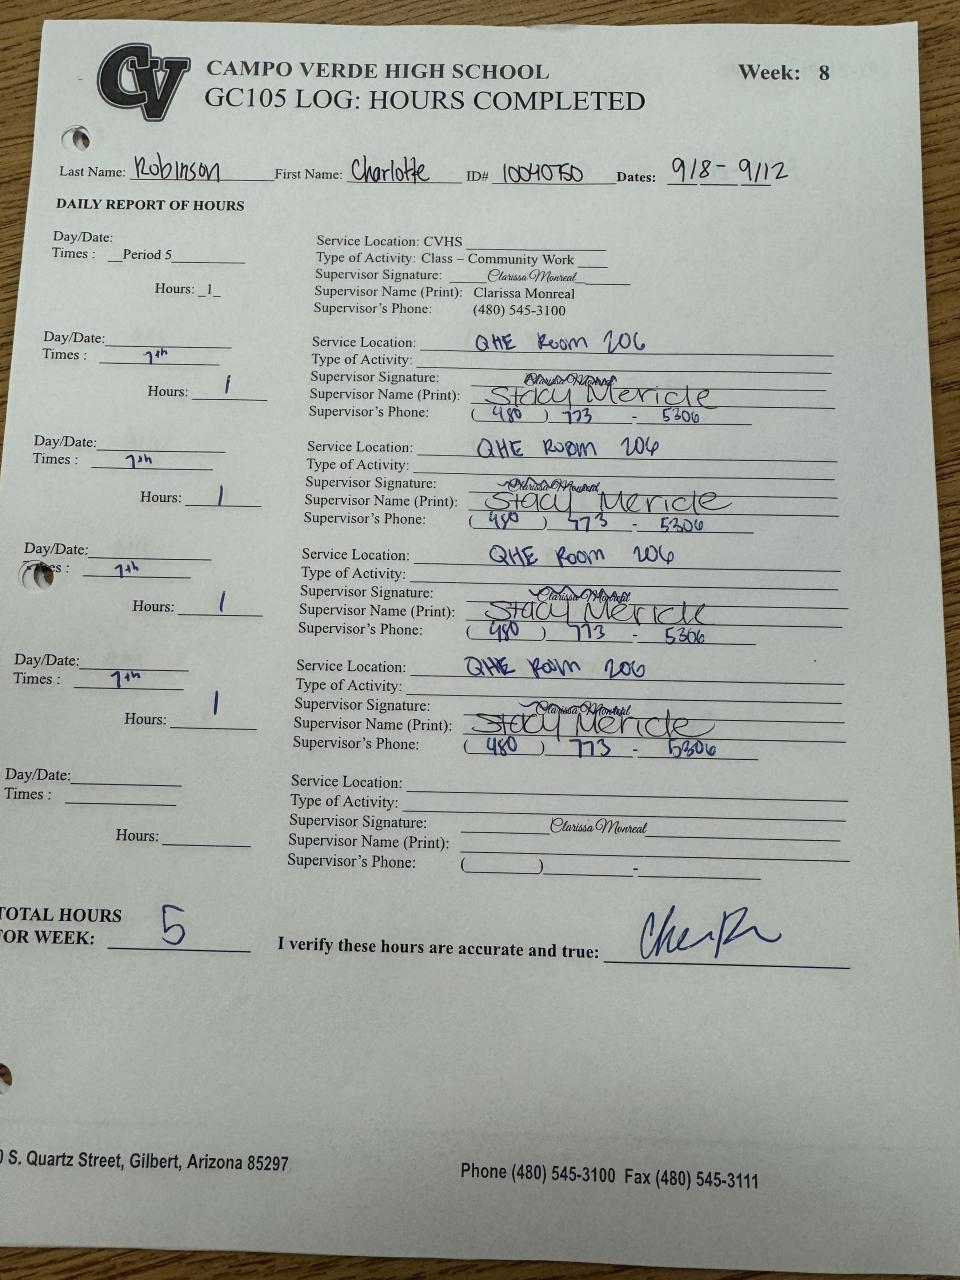 CV
CAMPO VERDE HIGH SCHOOL
Week: 8
GC105 LOG: HOURS COMPLETED
Last Name: Robinson First Name: Charlotte ID# 10040750 Dates: 9/8 - 9/12
DAILY REPORT OF HOURS
Day/Date:
Times : Period 5
Hours: 1
Service Location: CVHS
Type of Activity: Class – Community Work
Supervisor Signature: Clarissa Monreal
Supervisor Name (Print): Clarissa Monreal
Supervisor's Phone: (480) 545-3100
Day/Date:
Times : 7th
Hours: 1
Service Location: QHE Room 206
Type of Activity:
Supervisor Signature: Clarissa Monreal
Supervisor Name (Print): Stacy Mericle
Supervisor's Phone: (480) 773 - 5306
Day/Date:
Times : 7th
Hours: 1
Service Location: QHE Room 206
Type of Activity:
Supervisor Signature: Clarissa Monreal
Supervisor Name (Print): Stacy Mericle
Supervisor's Phone: (480) 773 - 5306
Day/Date:
es : 7th
Hours: 1
Service Location: QHE Room 206
Type of Activity:
Supervisor Signature: Clarissa Monreal
Supervisor Name (Print): Stacy Mericle
Supervisor's Phone: (480) 773 - 5306
Day/Date:
Times : 7th
Hours: 1
Service Location: QHE Room 206
Type of Activity:
Supervisor Signature: Clarissa Monreal
Supervisor Name (Print): Stacy Mericle
Supervisor's Phone: (480) 773 - 5306
Day/Date:
Times :
Hours:
Service Location:
Type of Activity:
Supervisor Signature: Clarissa Monreal
Supervisor Name (Print):
Supervisor's Phone: ( ) -
TOTAL HOURS
FOR WEEK: 5
I verify these hours are accurate and true:
0 S. Quartz Street, Gilbert, Arizona 85297
Phone (480) 545-3100 Fax (480) 545-3111